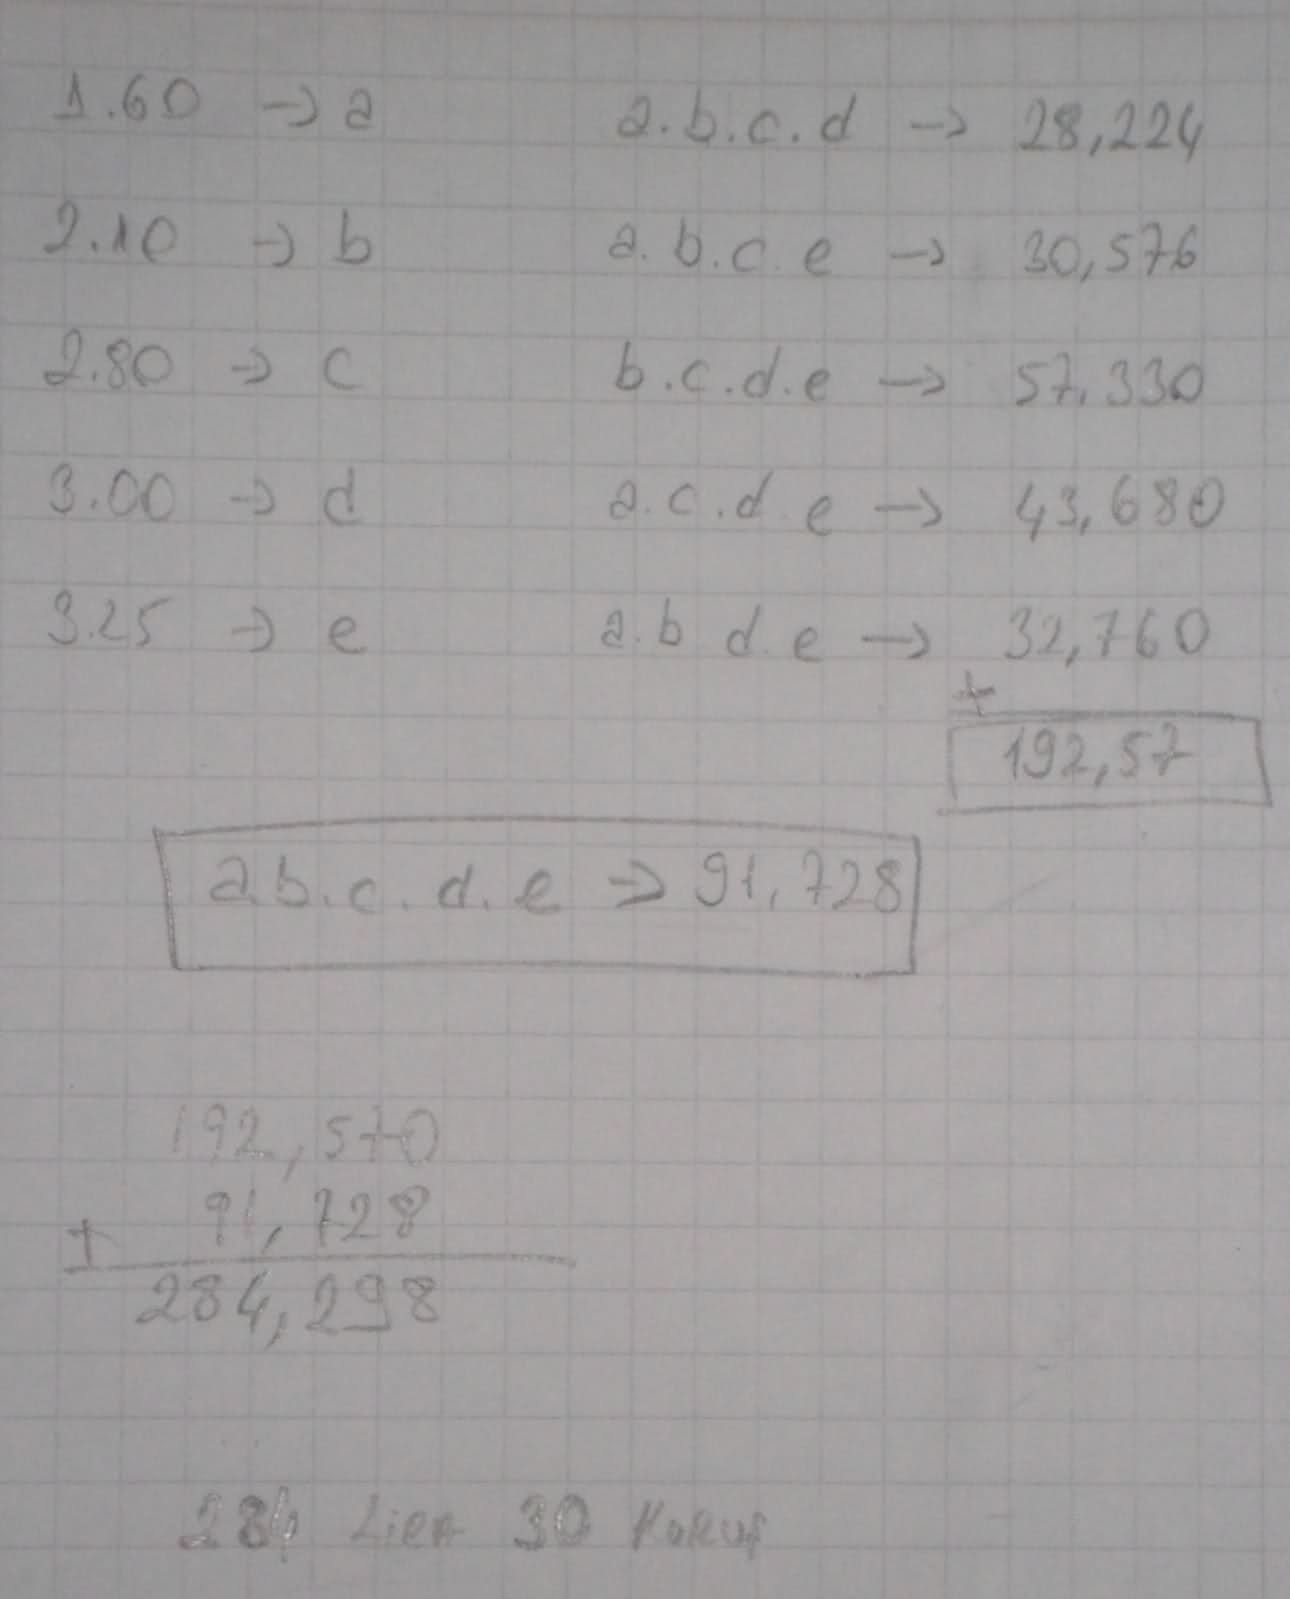 1.60 → a a.b.c.d → 28,224
2.10 → b a.b.c.e → 30,576
2.80 → c b.c.d.e → 57,330
3.00 → d a.c.d.e → 43,680
3.25 → e a.b d.e → 32,760
+
192,57
a.b.c.d.e → 91,728
192,570
+ 91,728
284,298
284 Lira 30 Kuruş